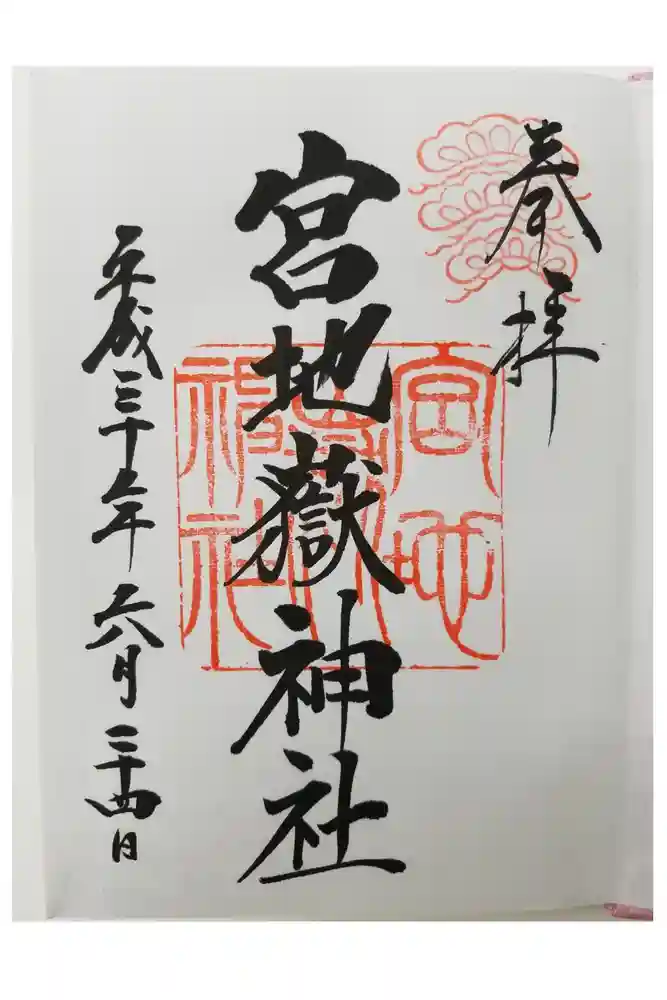 奉拝
宮地嶽神社
宮地嶽神社
平成三十年六月二十四日